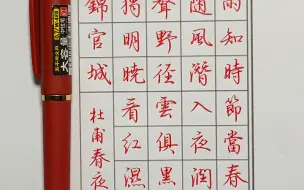 雨知時節當春
随風潛入夜潤
聲野徑雲俱黑
獨明曉看紅濕
錦官城
杜甫春夜
大容量